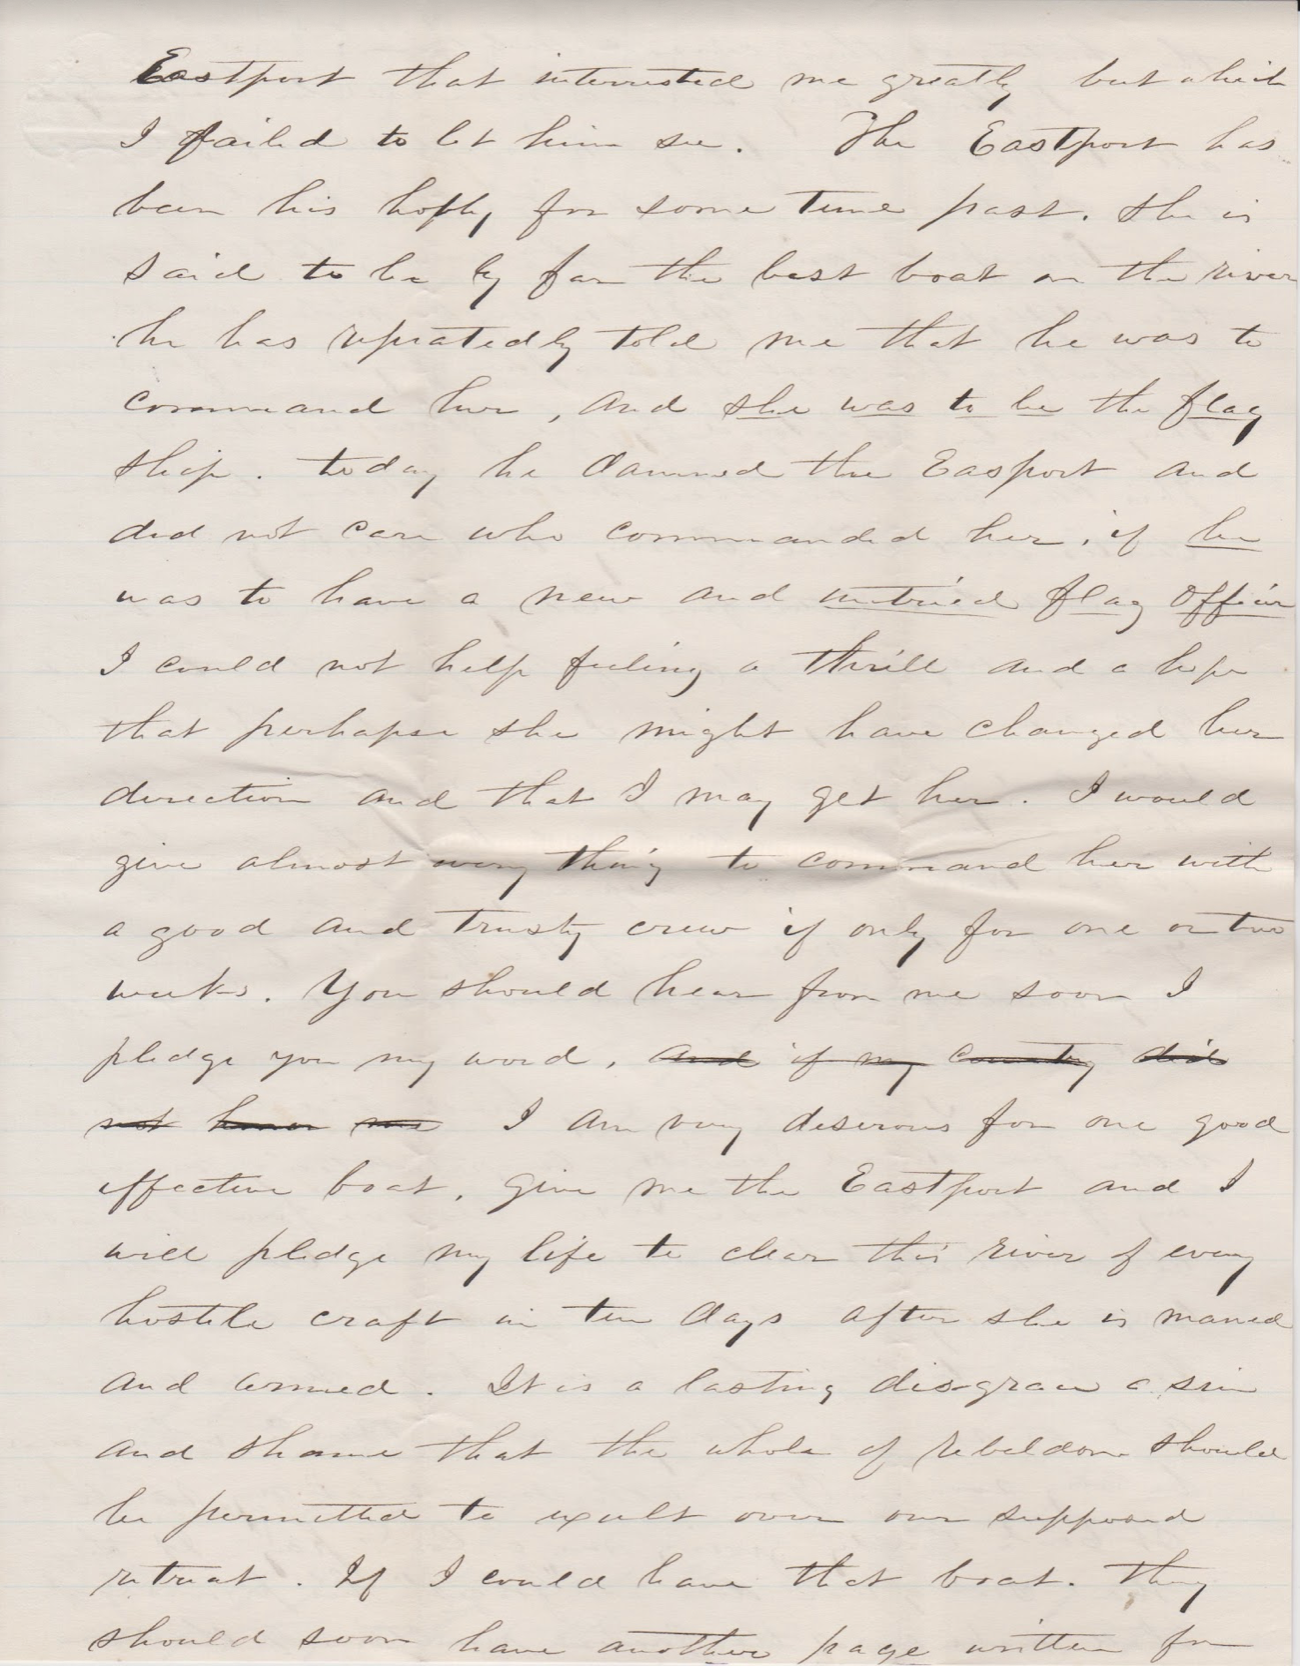 Eastport that interested me greatly but which
I failed to let him see. The Eastport has
been his hobby for some time past. She is
said to be by far the best boat on the river
he has repeatedly told me that he was to
command her, and she was to be the flag
ship. today he damned the Easport and
did not care who commanded her, if he
was to have a new and untried flag officer
I could not help feeling a thrill and a hope
that perhapse she might have changed her
direction and that I may get her. I would
give almost every thing to command her with
a good and trusty crew if only for one or two
weeks. You should hear from me soon I
pledge you my word. and if my country did
not honor me I am very deserous for one good
effective boat. Give me the Eastport and I
will pledge my life to clear this river of every
hostile craft in ten days after she is maned
and armed. It is a lasting disgrace a sin
and shame that the whole of rebeldom should
be permitted to exult over our supposed
retreat. If I could have that boat. They
should soon have another page written for